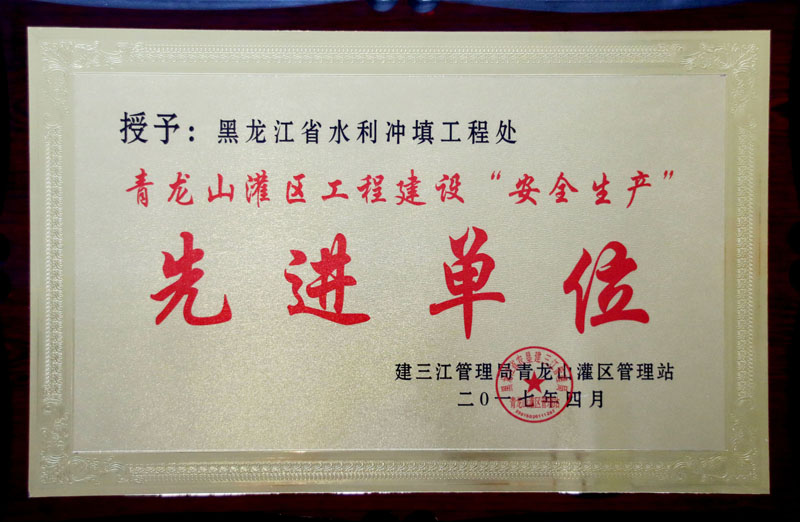 授予：黑龙江省水利冲填工程处
青龙山灌区工程建设“安全生产”
先进单位
建三江管理局青龙山灌区管理站
二0一七年四月